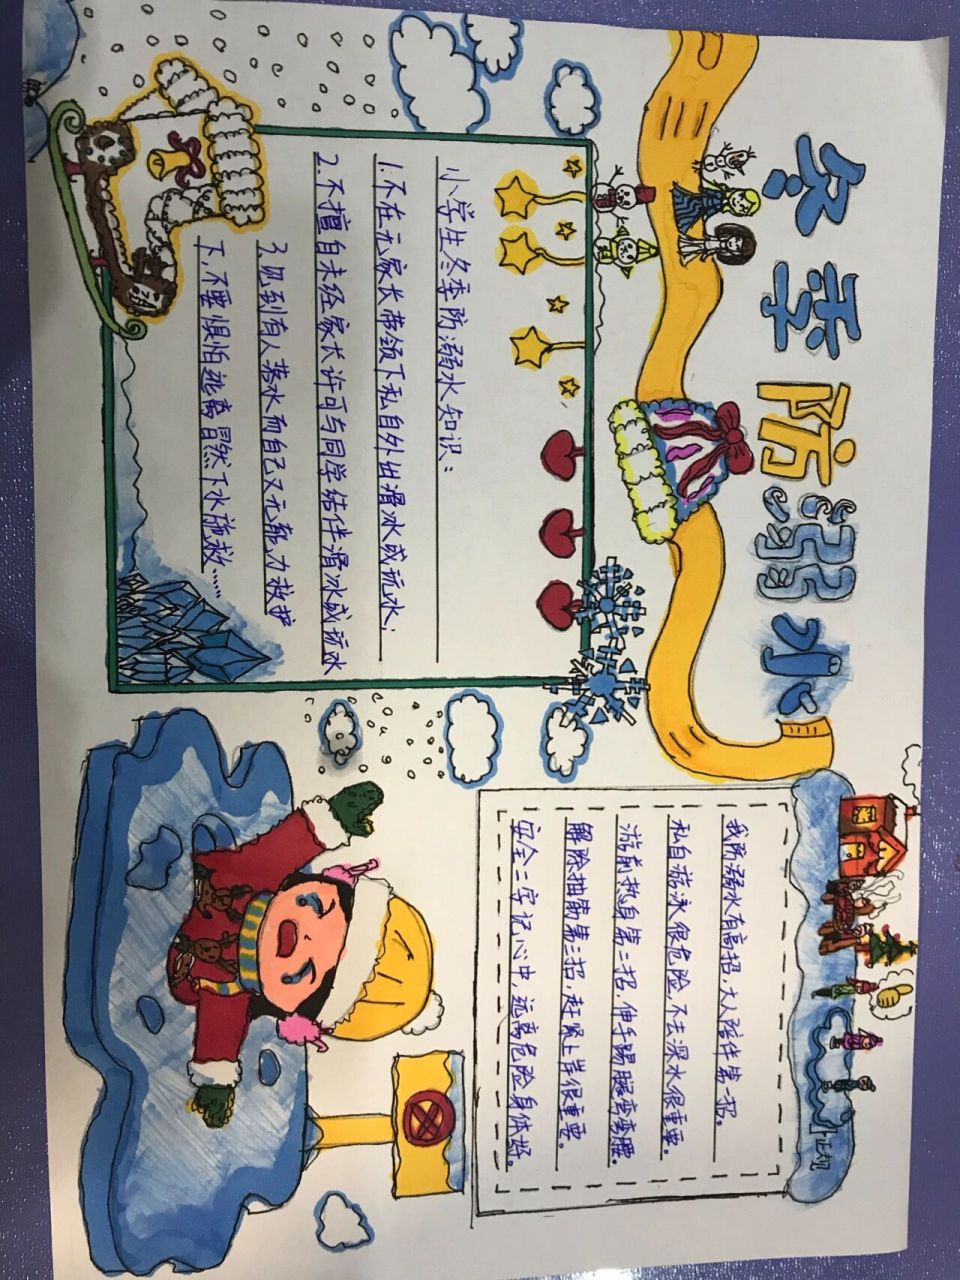 冬季防溺水
小学生冬季防溺水知识：
1.不在无家长带领下私自外出滑冰或玩水；
2.不擅自未经家长许可与同学结伴滑冰或玩冰
3.见到有人落水而自己又无能力救护
下，不要惧怕逃离冒然下水施救……
我防溺水有高招，大人陪伴第一招。
私自游泳很危险，不去深水很重要。
游前热身第二招，伸手踢腿弯弯腰。
解除抽筋第三招，赶紧上岸很重要。
安全二字记心中，远离危险身体好。
正规